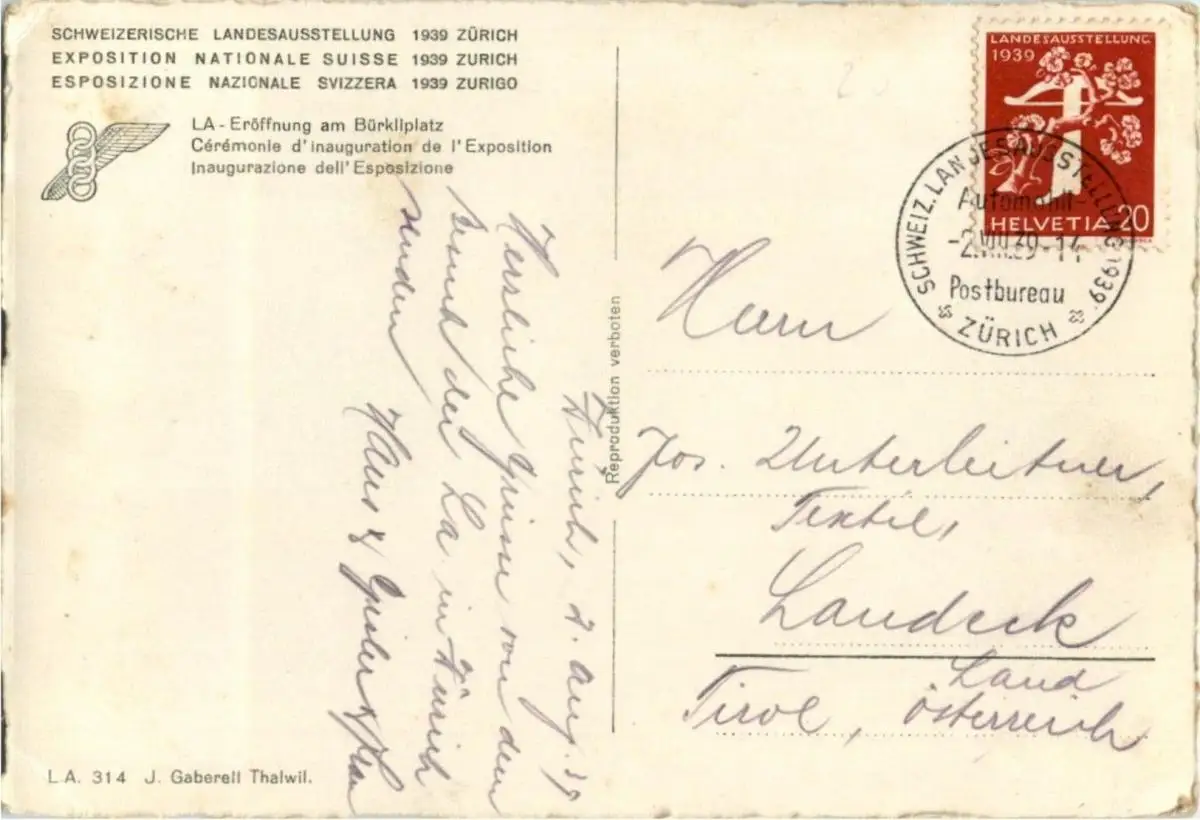 SCHWEIZERISCHE LANDESAUSSTELLUNG 1939 ZÜRICH
EXPOSITION NATIONALE SUISSE 1939 ZURICH
ESPOSIZIONE NAZIONALE SVIZZERA 1939 ZURIGO
LA - Eröffnung am Bürkliplatz
Cérémonie d'inauguration de l'Exposition
Inaugurazione dell'Esposizione
Zürich, 2. Aug. 39
Herzliche Grüsse von dem
Besuch der La. in Zürich
senden
Hans &
L.A. 314 J. Gaberell Thalwil.
Reproduktion verboten
LANDESAUSSTELLUNG
1939
HELVETIA 20
SCHWEIZ. LANDESAUSSTELLUNG 1939
Automobil-
-2.VIII.39-14
Postbureau
ZÜRICH
Herrn
Jos. Unterleitner,
Textil,
Landeck
Land
Tirol, Österreich